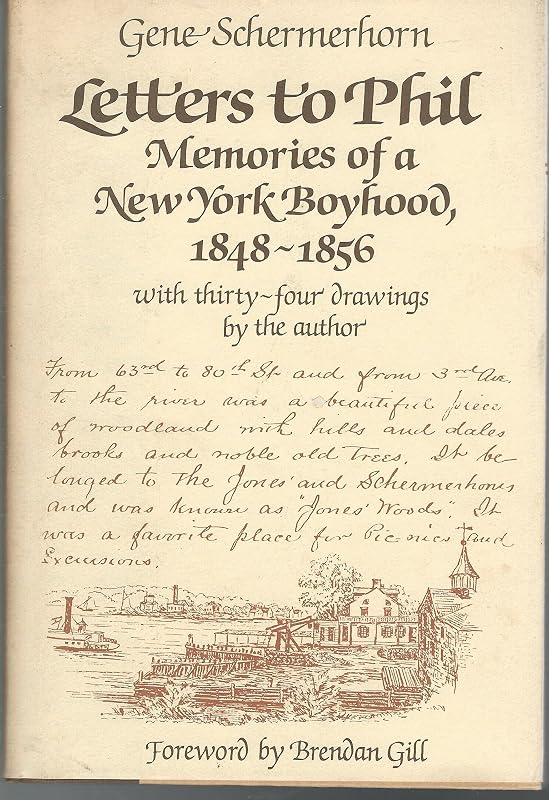 Gene Schermerhorn
Letters to Phil
Memories of a
New York Boyhood,
1848~1856
with thirty~four drawings
by the author
From 63rd to 80th St and from 3rd Ave.
to the river was a beautiful piece
of woodland with hills and dales
brooks and noble old trees. It be
longed to the Jones' and Schermerhorns
and was known as "Jones' Woods". It
was a favorite place for Pic-nics and
Excursions.
Foreword by Brendan Gill